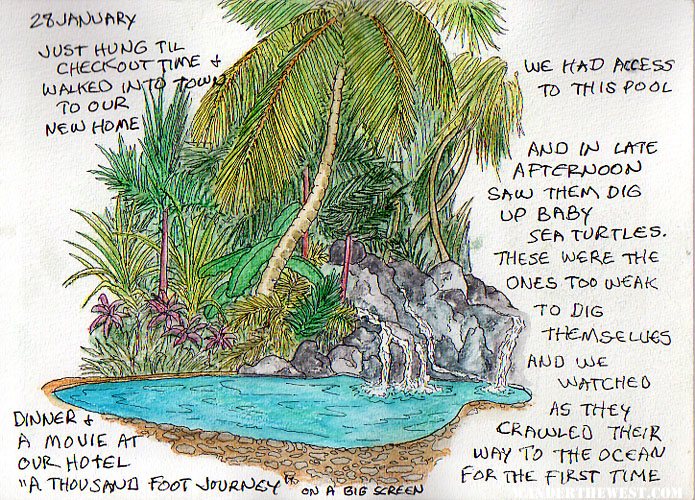 28 JANUARY
JUST HUNG TIL
CHECKOUT TIME &
WALKED INTO TOWN
TO OUR
NEW HOME
WE HAD ACCESS
TO THIS POOL
AND IN LATE
AFTERNOON
SAW THEM DIG
UP BABY
SEA TURTLES.
THESE WERE THE
ONES TOO WEAK
TO DIG
THEMSELVES
AND WE
WATCHED
AS THEY
CRAWLED THEIR
WAY TO THE OCEAN
FOR THE FIRST TIME
DINNER &
A MOVIE AT
OUR HOTEL
"A THOUSAND FOOT JOURNEY"
ON A BIG SCREEN